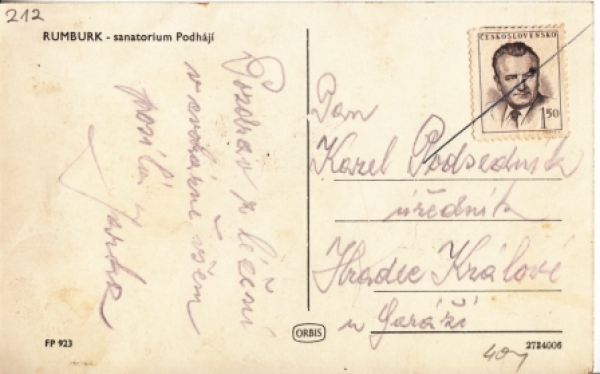 212
RUMBURK - sanatorium Podhájí
Pozdrav z léčení
všem
posílá Jarka
ČESKOSLOVENSKO
1 50
Pan
Karel Podsedník
úředník
Hradec Králové
u Garáží
ORBIS
FP 923
2724006